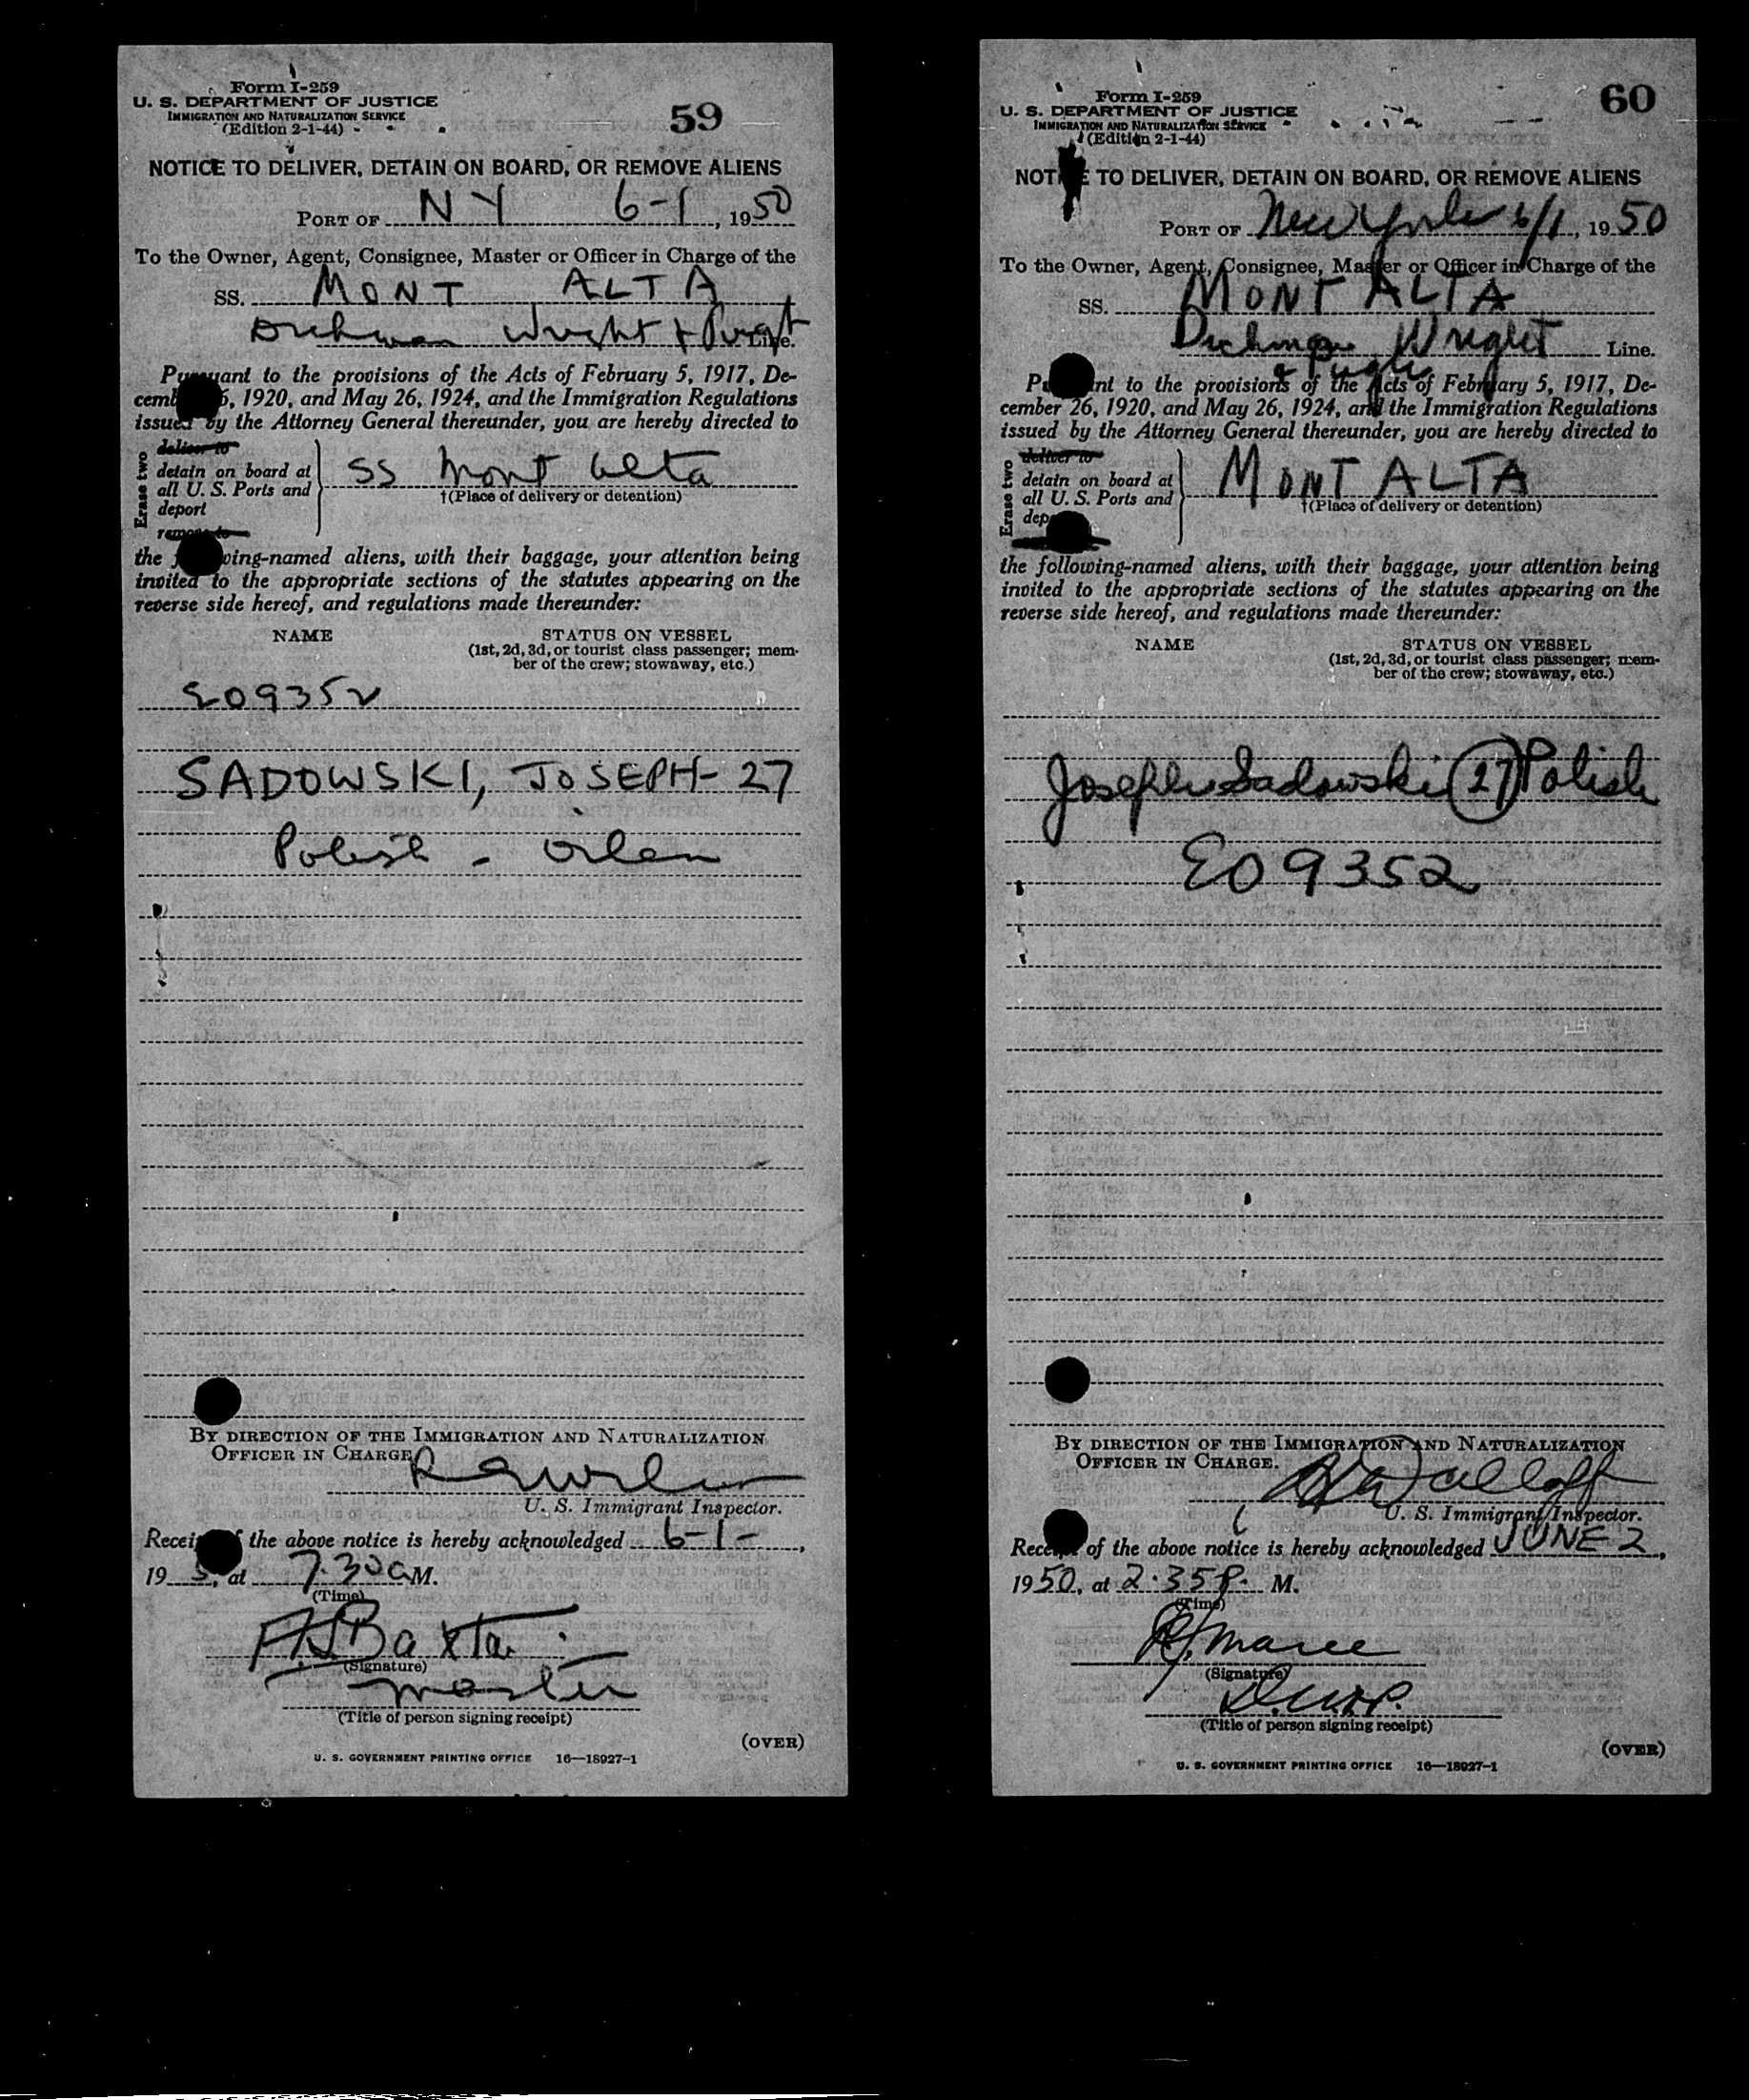 Form I-259
U. S. DEPARTMENT OF JUSTICE
IMMIGRATION AND NATURALIZATION SERVICE
(Edition 2-1-44)
59
NOTICE TO DELIVER, DETAIN ON BOARD, OR REMOVE ALIENS
PORT OF NY 6-1, 1950
To the Owner, Agent, Consignee, Master or Officer in Charge of the
SS. MONT ALTA
Dichman Wright & Pugh Line.
Pursuant to the provisions of the Acts of February 5, 1917, De-
cember 26, 1920, and May 26, 1924, and the Immigration Regulations
issued by the Attorney General thereunder, you are hereby directed to
Erase two
deliver to
detain on board at
all U. S. Ports and
deport
remove to
SS Mont Alta
†(Place of delivery or detention)
the following-named aliens, with their baggage, your attention being
invited to the appropriate sections of the statutes appearing on the
reverse side hereof, and regulations made thereunder:
NAME STATUS ON VESSEL
(1st, 2d, 3d, or tourist class passenger; mem-
ber of the crew; stowaway, etc.)
E09352
SADOWSKI, JOSEPH-27
Polish - oiler
BY DIRECTION OF THE IMMIGRATION AND NATURALIZATION
OFFICER IN CHARGE
U. S. Immigrant Inspector.
Receipt of the above notice is hereby acknowledged 6-1-,
19 5, at 7.30 a M.
(Time)
A.S. Baxter
(Signature)
master
(Title of person signing receipt)
(OVER)
U. S. GOVERNMENT PRINTING OFFICE 16—18927-1
Form I-259
U. S. DEPARTMENT OF JUSTICE
IMMIGRATION AND NATURALIZATION SERVICE
(Edition 2-1-44)
60
NOTICE TO DELIVER, DETAIN ON BOARD, OR REMOVE ALIENS
PORT OF New York 6/1, 1950
To the Owner, Agent, Consignee, Master or Officer in Charge of the
SS. MONT ALTA
Dichman Wright Line.
& Pugh
Pursuant to the provisions of the Acts of February 5, 1917, De-
cember 26, 1920, and May 26, 1924, and the Immigration Regulations
issued by the Attorney General thereunder, you are hereby directed to
Erase two
deliver to
detain on board at
all U. S. Ports and
deport
MONT ALTA
†(Place of delivery or detention)
the following-named aliens, with their baggage, your attention being
invited to the appropriate sections of the statutes appearing on the
reverse side hereof, and regulations made thereunder:
NAME STATUS ON VESSEL
(1st, 2d, 3d, or tourist class passenger; mem-
ber of the crew; stowaway, etc.)
Joseph Sadowski (27) Polish
E09352
BY DIRECTION OF THE IMMIGRATION AND NATURALIZATION
OFFICER IN CHARGE.
U. S. Immigrant Inspector.
Receipt of the above notice is hereby acknowledged JUNE 2,
1950, at 2.35 P. M.
(Time)
(Signature)
D.W.&P.
(Title of person signing receipt)
(OVER)
U. S. GOVERNMENT PRINTING OFFICE 16—18927-1